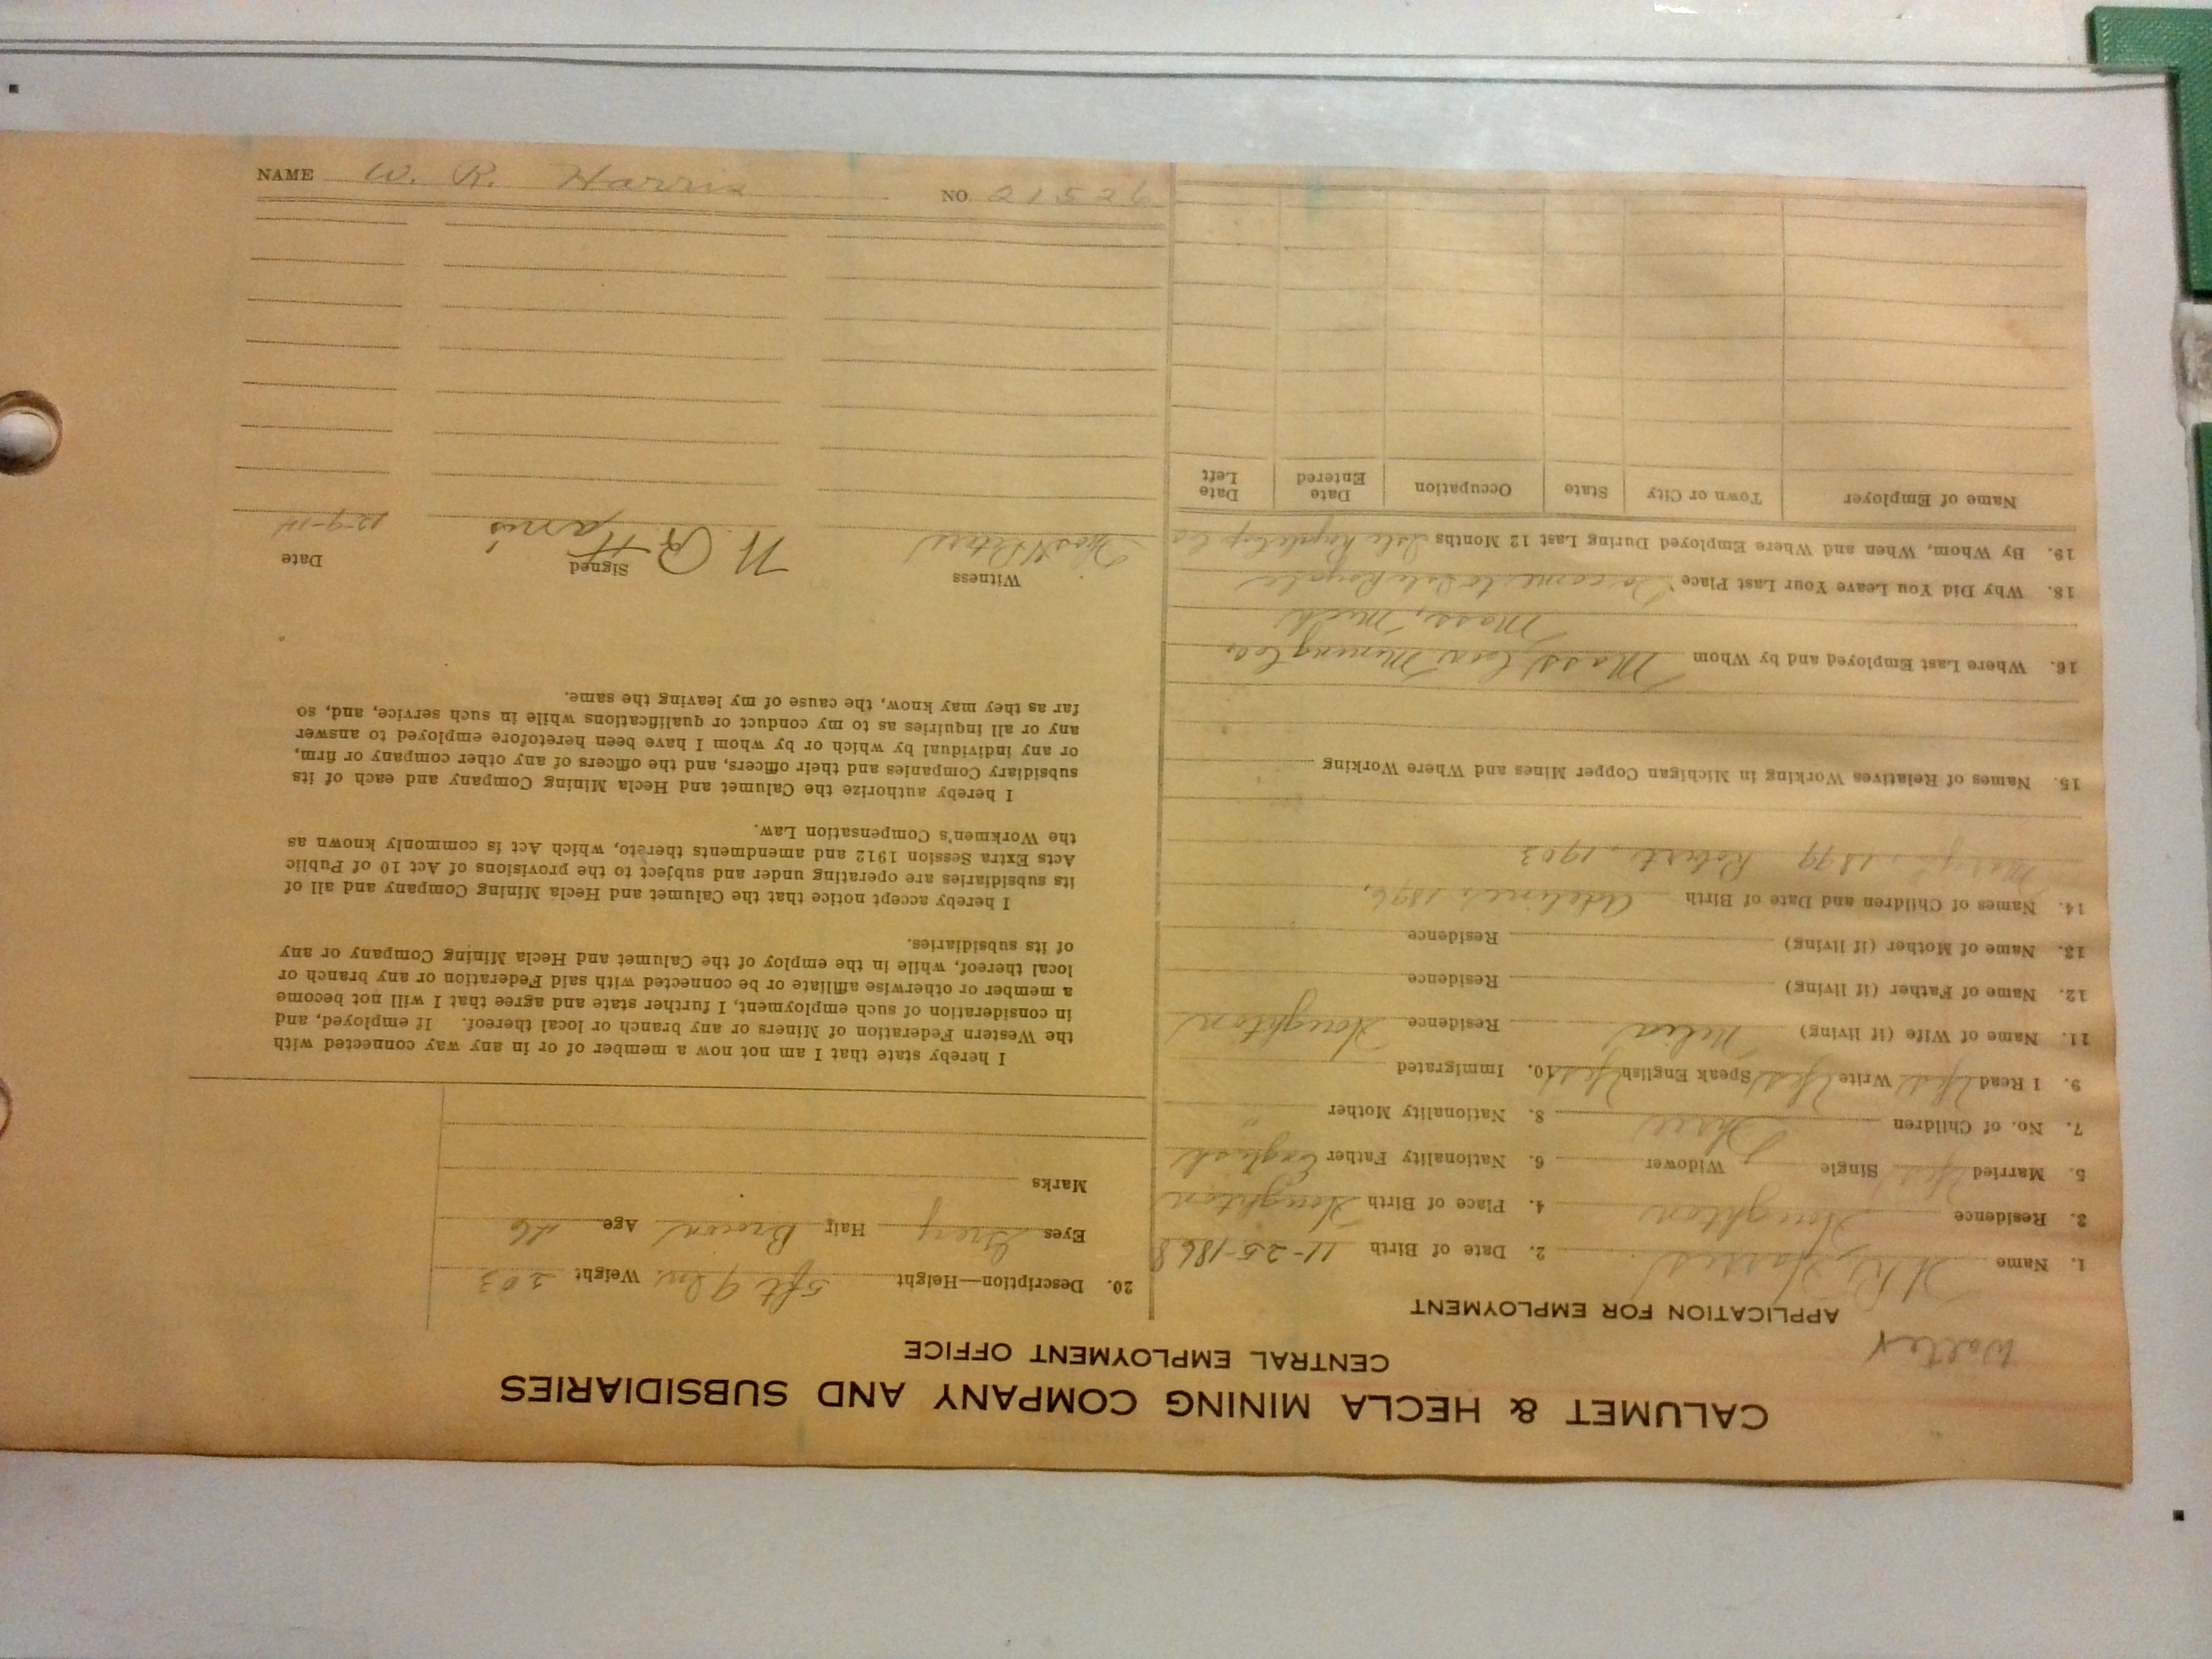 CALUMET & HECLA MINING COMPANY AND SUBSIDIARIES
CENTRAL EMPLOYMENT OFFICE
Walter
APPLICATION FOR EMPLOYMENT
1. Name W. R. Harris 2. Date of Birth 11-25-1868
3. Residence Houghton 4. Place of Birth Houghton
5. Married Yes Single Widower 6. Nationality Father English
7. No. of Children Three 8. Nationality Mother "
9. I Read Yes Write Yes Speak English Yes 10. Immigrated
11. Name of Wife (if living) Residence Houghton
12. Name of Father (if living) Residence
13. Name of Mother (if living) Residence
14. Names of Children and Date of Birth Adeline, 1896,
1899 Robert, 1903
15. Names of Relatives Working in Michigan Copper Mines and Where Working
16. Where Last Employed and by Whom Mass Con. Mining Co.
Mass, Mich
18. Why Did You Leave Your Last Place To come to Isle Royale
19. By Whom, When and Where Employed During Last 12 Months Isle Royale Cop Co
Name of Employer Town or City State Occupation Date Entered Date Left
20. Description—Height 5 ft 9 in Weight 203
Eyes Grey Hair Brown Age 46
Marks
I hereby state that I am not now a member of or in any way connected with
the Western Federation of Miners or any branch or local thereof. If employed, and
in consideration of such employment, I further state and agree that I will not become
a member or otherwise affiliate or be connected with said Federation or any branch or
local thereof, while in the employ of the Calumet and Hecla Mining Company or any
of its subsidiaries.
I hereby accept notice that the Calumet and Hecla Mining Company and all of
its subsidiaries are operating under and subject to the provisions of Act 10 of Public
Acts Extra Session 1912 and amendments thereto, which Act is commonly known as
the Workmen's Compensation Law.
I hereby authorize the Calumet and Hecla Mining Company and each of its
subsidiary Companies and their officers, and the officers of any other company or firm,
or any individual by which or by whom I have been heretofore employed to answer
any or all inquiries as to my conduct or qualifications while in such service, and, so
far as they may know, the cause of my leaving the same.
Witness Signed Date
W. R. Harris 12-9-14
NAME W. R. Harris NO. 21526